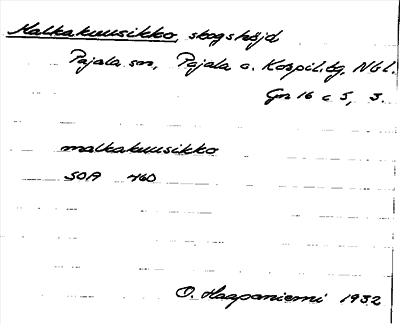 Malkakuusikko, skogshöjd
Pajala sn, Pajala o. Korpil.tg, Nbl.
Gn 16 c 5, 3.
malkakuusikko
SOA 460
O. Haapaniemi 1932